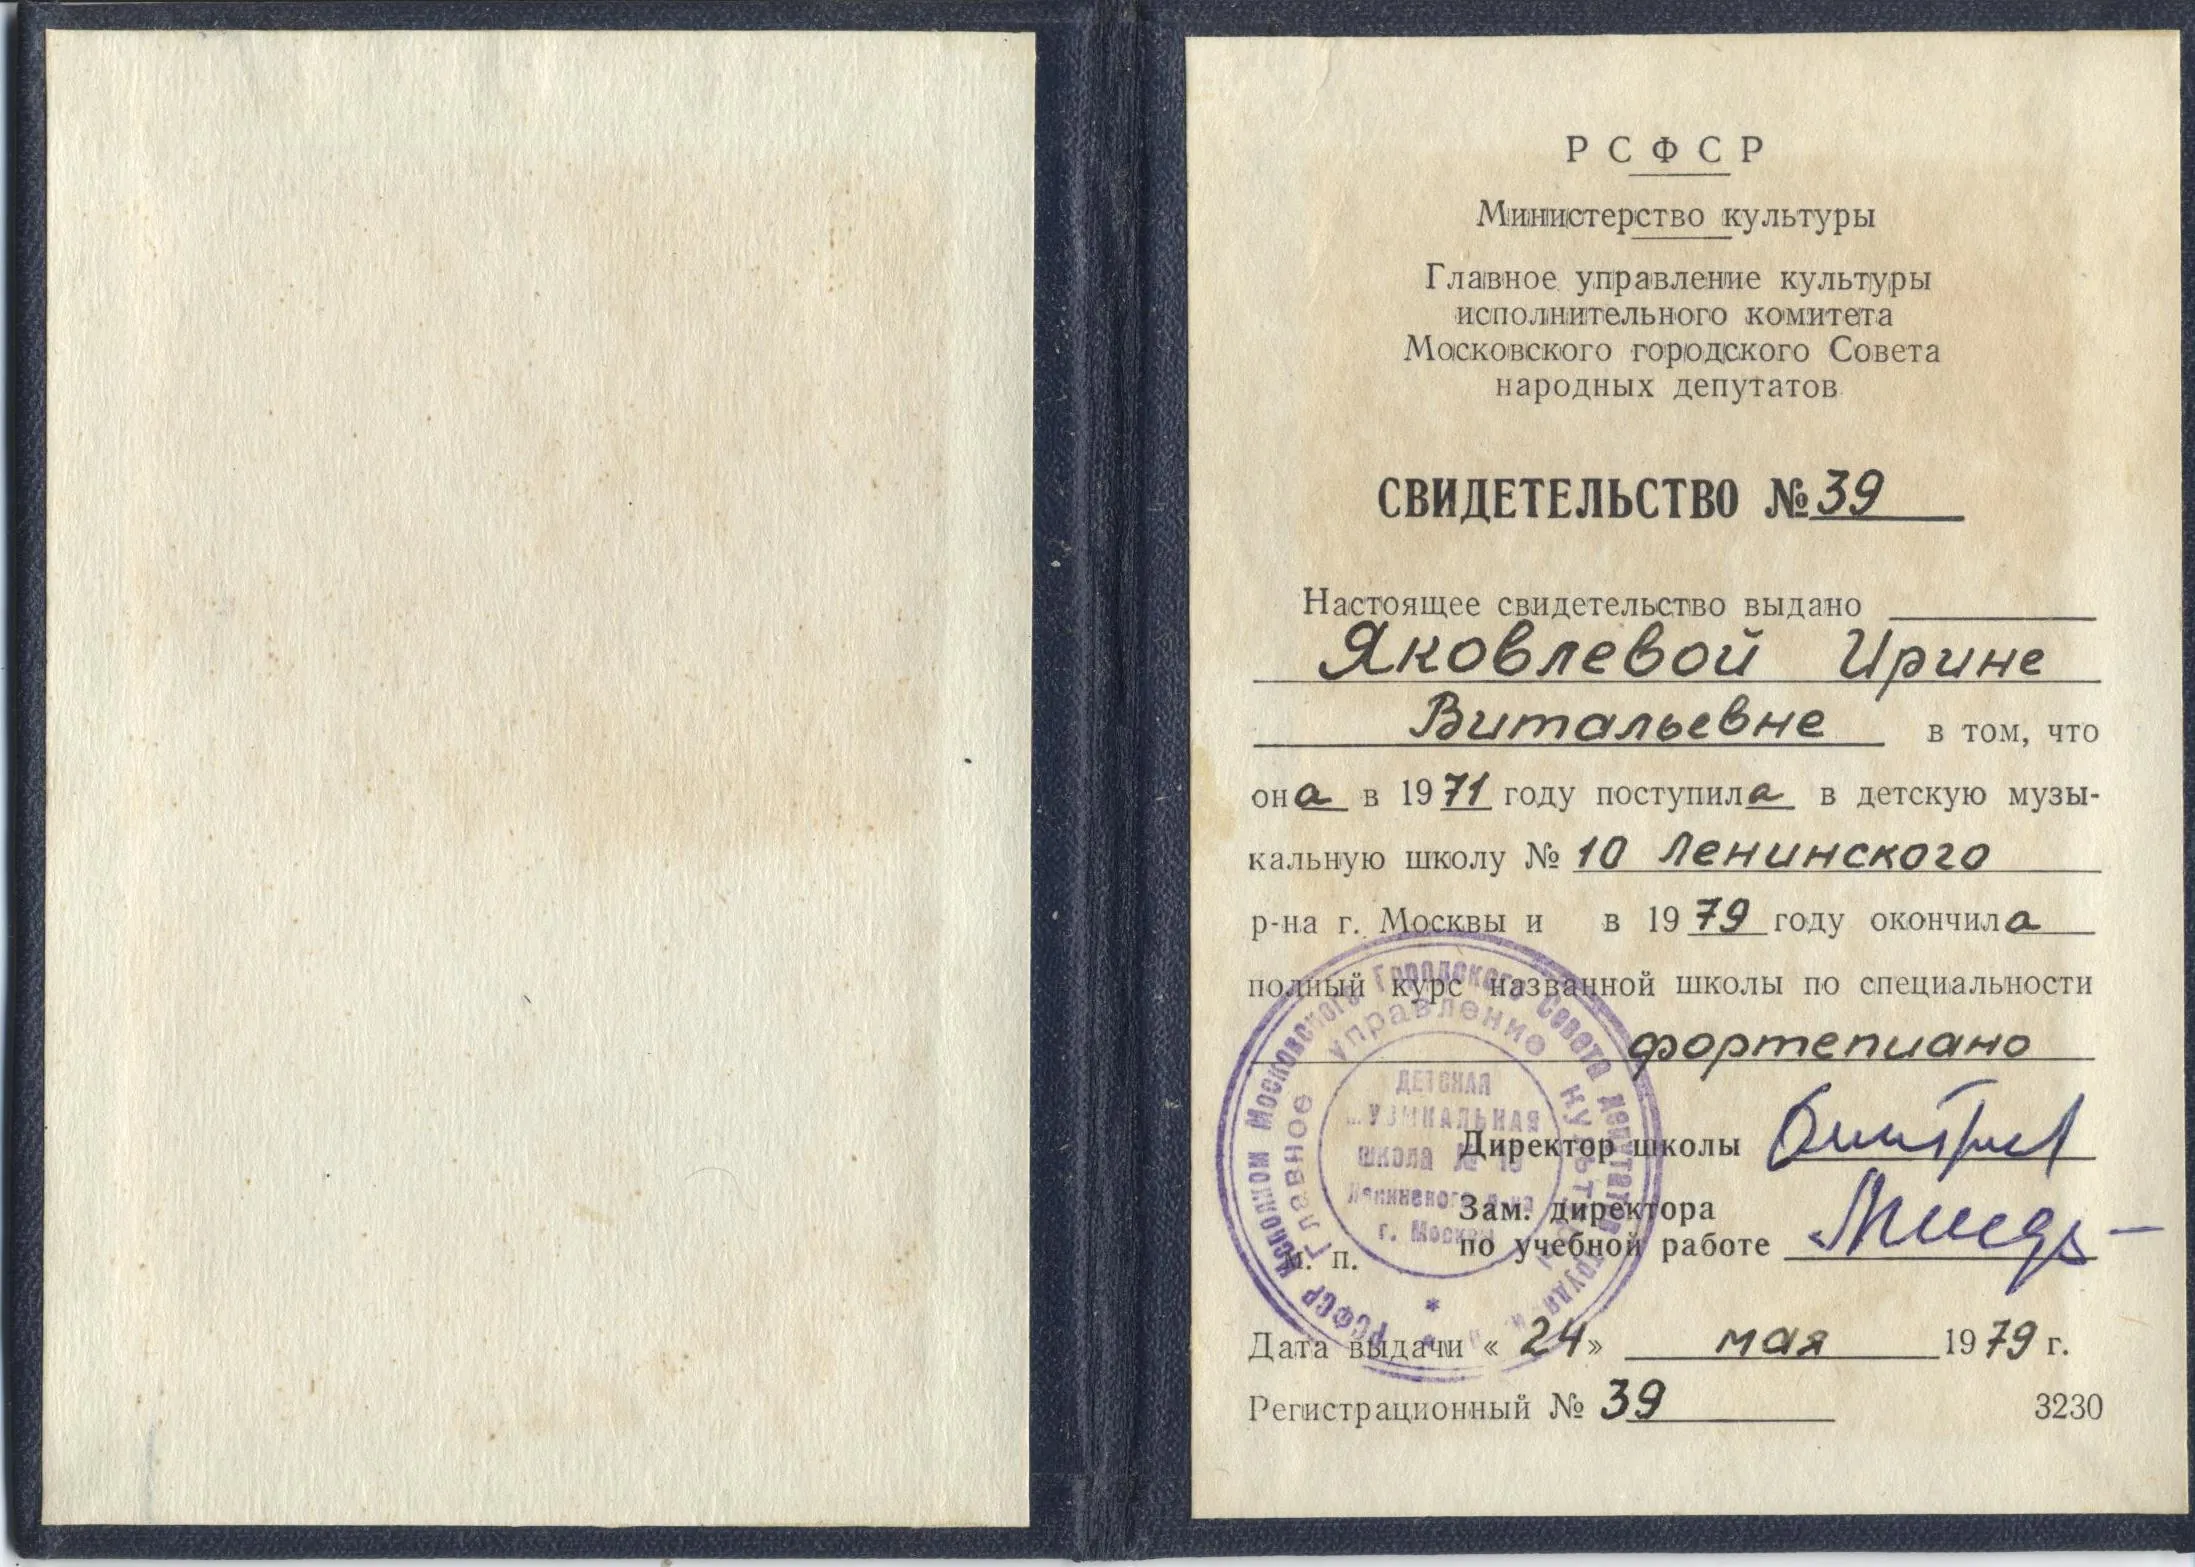 РСФСР
Министерство культуры
Главное управление культуры
исполнительного комитета
Московского городского Совета
народных депутатов
СВИДЕТЕЛЬСТВО № 39
Настоящее свидетельство выдано
Яковлевой Ирине
Витальевне в том, что
она в 1971 году поступила в детскую музы-
кальную школу № 10 Ленинского
р-на г. Москвы и в 1979 году окончила
полный курс названной школы по специальности
фортепиано
Директор школы
Зам. директора
по учебной работе
М. П.
Дата выдачи «24» мая 1979 г.
Регистрационный № 39 3230
РСФСР Исполком Московского Городского Совета депутатов
Главное управление культуры
ДЕТСКАЯ
МУЗЫКАЛЬНАЯ
школа № 10
Ленинского р-на
г. Москвы